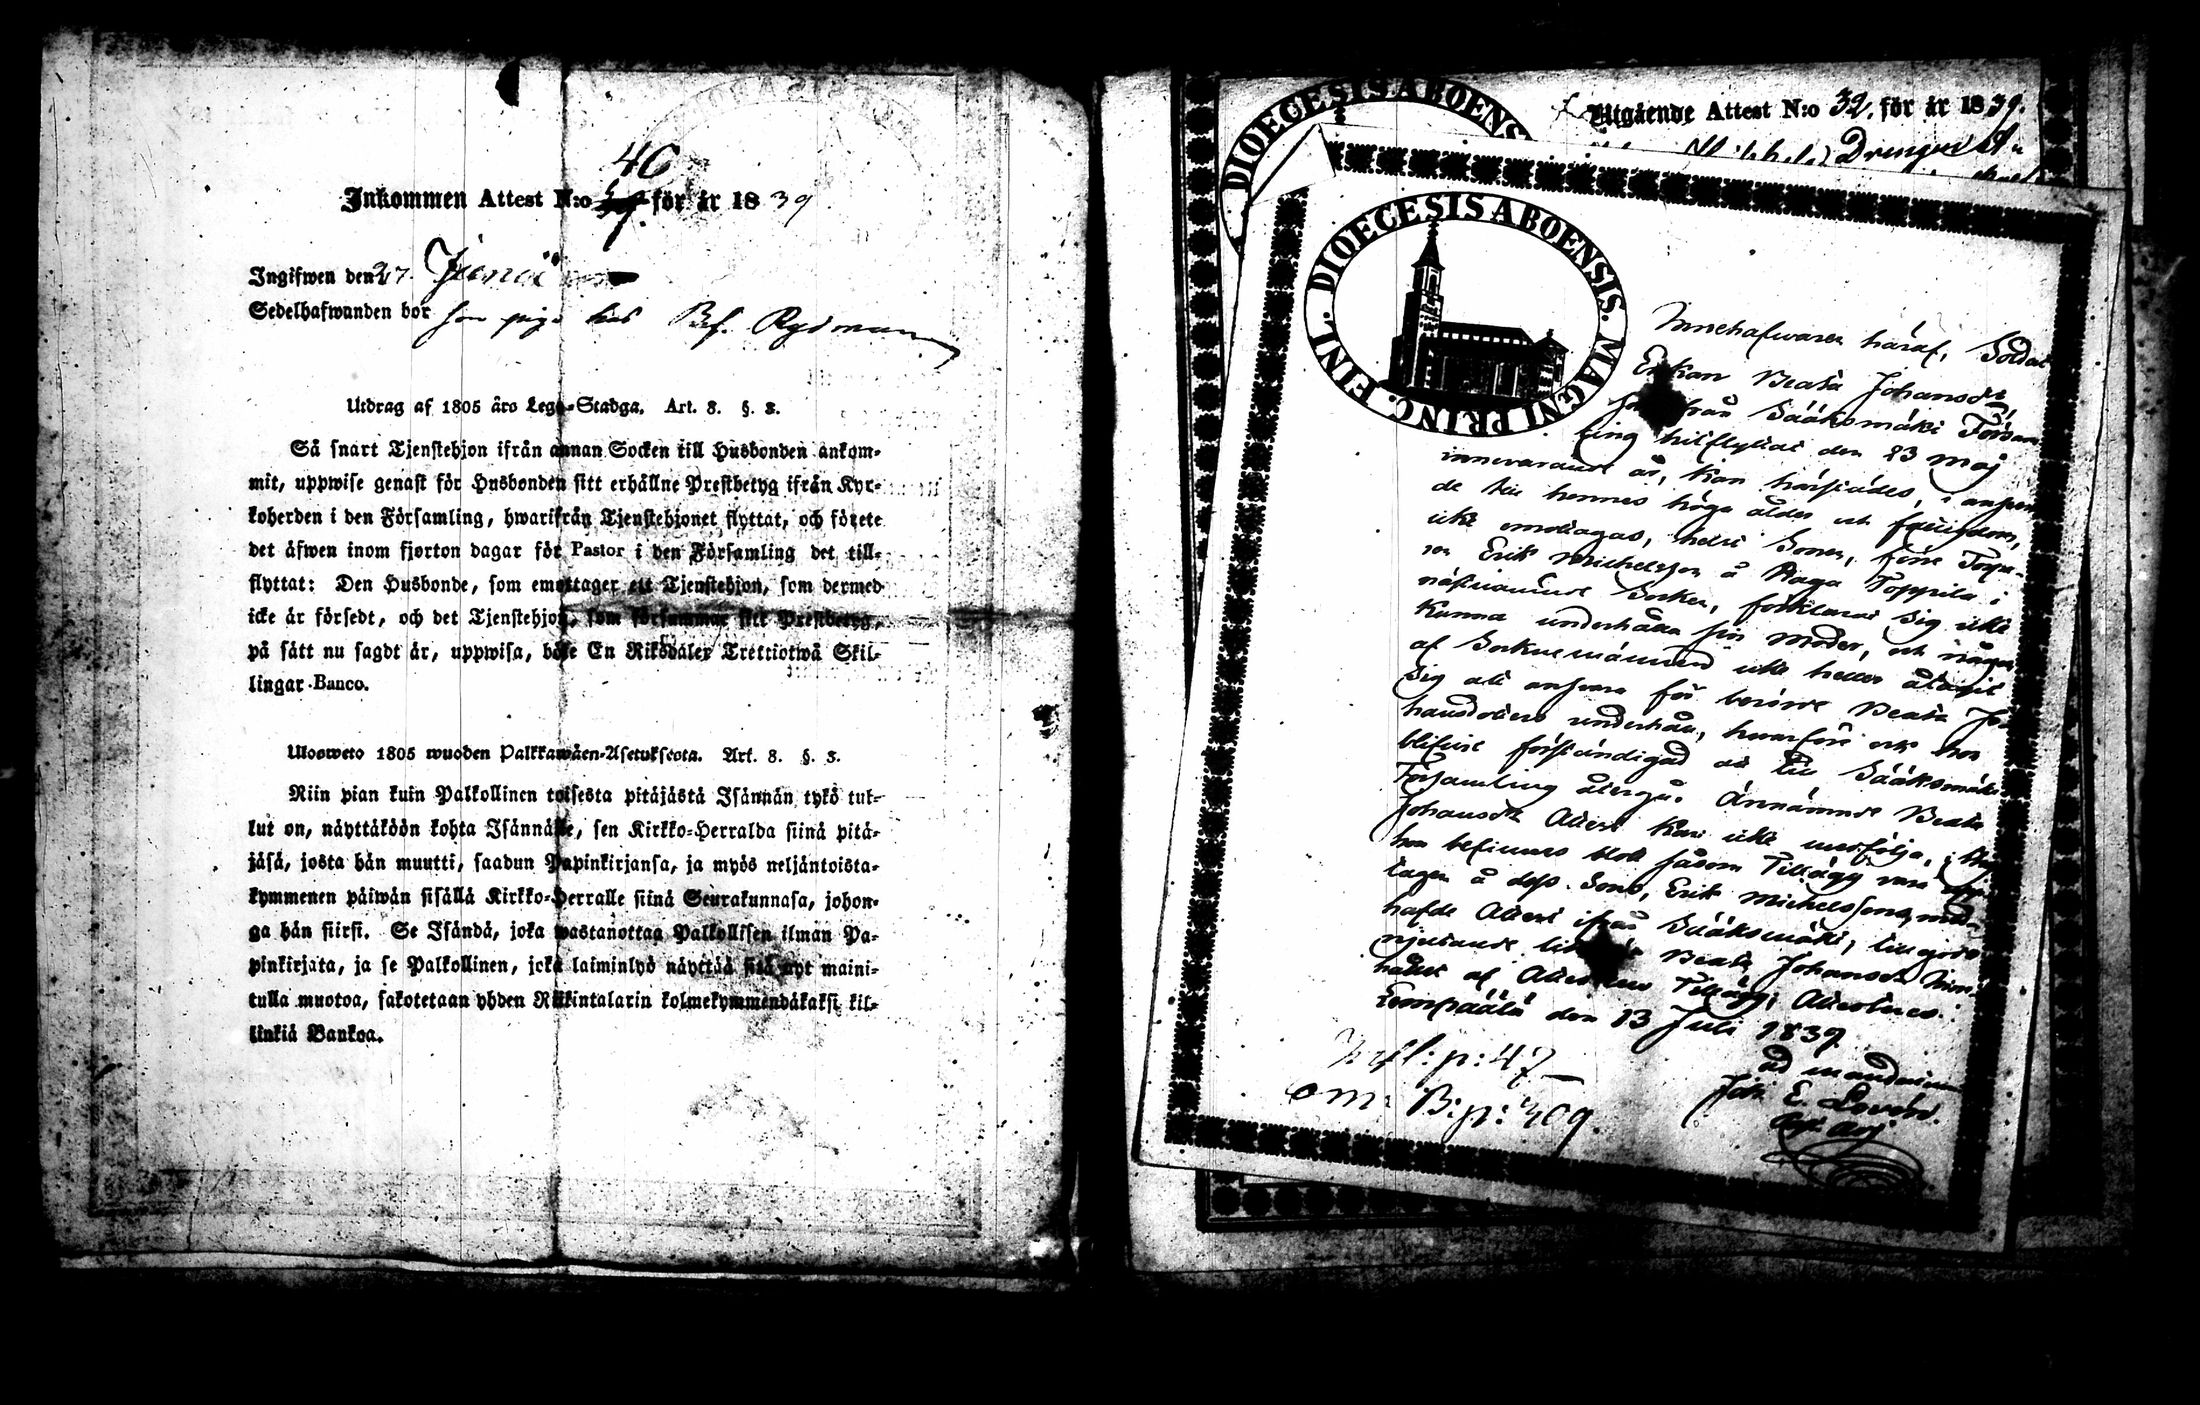 46
Inkommen Attest N:o för år 1839
Ingifwen den 27. Junii
Sedelhafwanden bor som piga hos Bf. Rydman
Utdrag af 1805 års Lego-Stadga. Art. 8. §. 3.
Så snart Tjenstehjon ifrån annan Socken till Husbonden ankom-
mit, uppwise genast för Husbonden sitt erhållne Prestbetyg ifrån Kyr-
koherden i den Församling, hwarifrån Tjenstehjonet flyttat, och förete
det äfwen inom fjorton dagar för Pastor i den Församling det till-
flyttat: Den Husbonde, som emottager ett Tjenstehjon, som dermed
icke är försedt, och det Tjenstehjon, som försummar sitt Prestbetyg,
på sätt nu sagdt är, uppwisa, böte En Riksdaler Trettiotwå Skil-
lingar Banco.
Ulosweto 1805 wuoden Palkkawäen-Asetuksesta. Art. 8. §. 3.
Niin pian kuin Palkollinen toisesta pitäjästä Isännän tykö tul-
lut on, näyttäköön kohta Isännälle, sen Kirkko-Herralda siinä pitä-
jäsä, josta hän muutti, saadun Papinkirjansa, ja myös neljäntoista-
kymmenen päiwän sisällä Kirkko-Herralle siinä Seurakunnasa, johon-
ga hän siirsi. Se Isändä, joka wastanottaa Palkollisen ilman Pa-
pinkirjata, ja se Palkollinen, joka laiminlyö näyttää sitä nyt maini-
tulla muotoa, sakotetaan yhden Riikintalarin kolmekymmendäkaksi kil-
linkiä Bankoa.
DIOECESIS ABOENS
Utgående Attest N:o 32. för år 1839.
Drengen
DIOECESIS ABOENSIS. MAGNI PRINC. FINL.
Innehafvaren häraf, Soldat
Enkan Beata Johansdr
från Sääksmäki Försam
ling hitflyttat den 23 Maj
innevarande år, kan härstädes, i anseen
de till hennes höga ålder och fattigdom,
icke emottagas, helst Sonen, förre Torpa-
ren Erik Michelsson å Haga Toppila i
nästnämnde Socken, förklarat sig icke
kunna underhålla sin moder, och någon
af Socknemännen icke heller åtagit
sig att ansvara för berörde Beata Jo
hansdotters underhåll, hvarföre ock hon
blifvit förständigad att till Sääksmäki
Församling återgå. Omnämnde Beata
Johansdr Attest kan icke medfölja, ty
hon befinnes blott såsom Tillägg vara upp
tagen å dess Sons, Erik Michelssons, med-
hafde Attest ifrån Sääksmäki, till godo
njutande Beata Johansdr inne-
hållet af Attestens Tillägg, Attesteras:
Lempäälä den 13 Juli 1839.
ad mandatum
Joh: E. Lovén.
Infl: p: 47
om: B: p: 409.